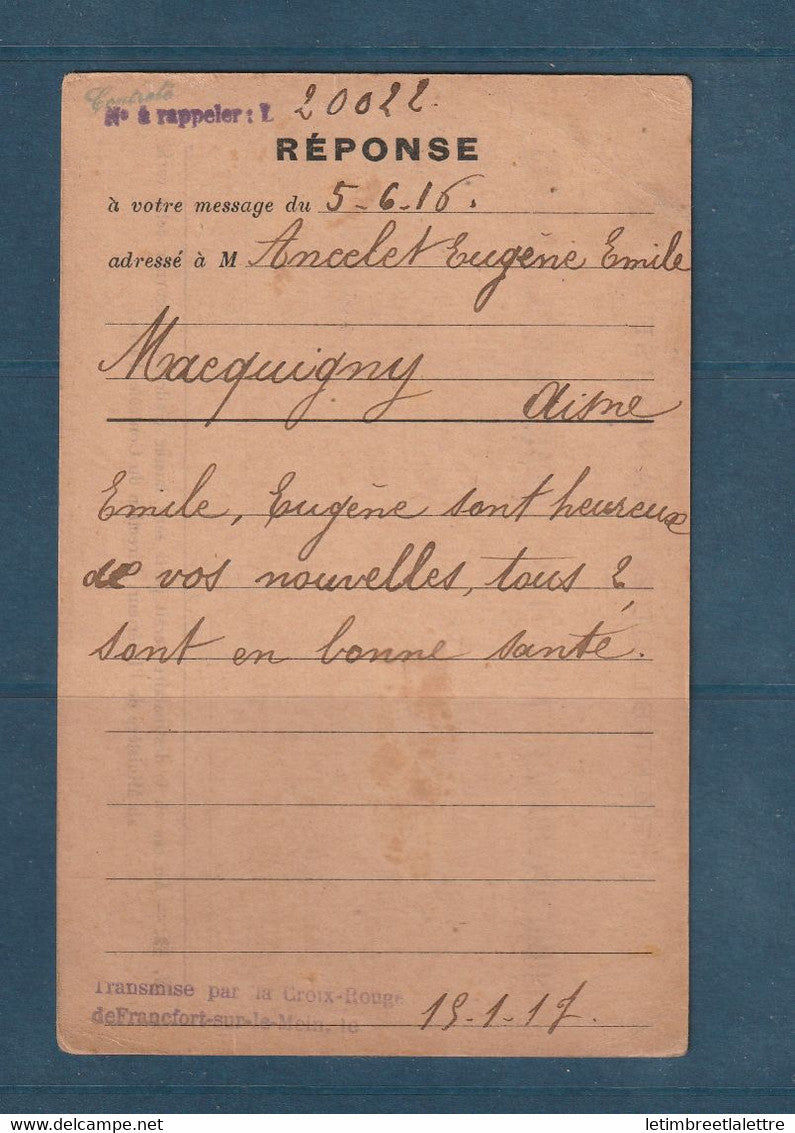 Contrôle
Nº à rappeler : L 20022.
RÉPONSE
à votre message du 5-6-16.
adressé à M Ancelet Eugène Emile
Macquigny
Aisne
Emile, Eugène sont heureux
de vos nouvelles, tous 2
sont en bonne santé.
Transmise par la Croix-Rouge
de Francfort-sur-le-Mein, le 19-1-17.
delcampe.net
letimbreetlalettre